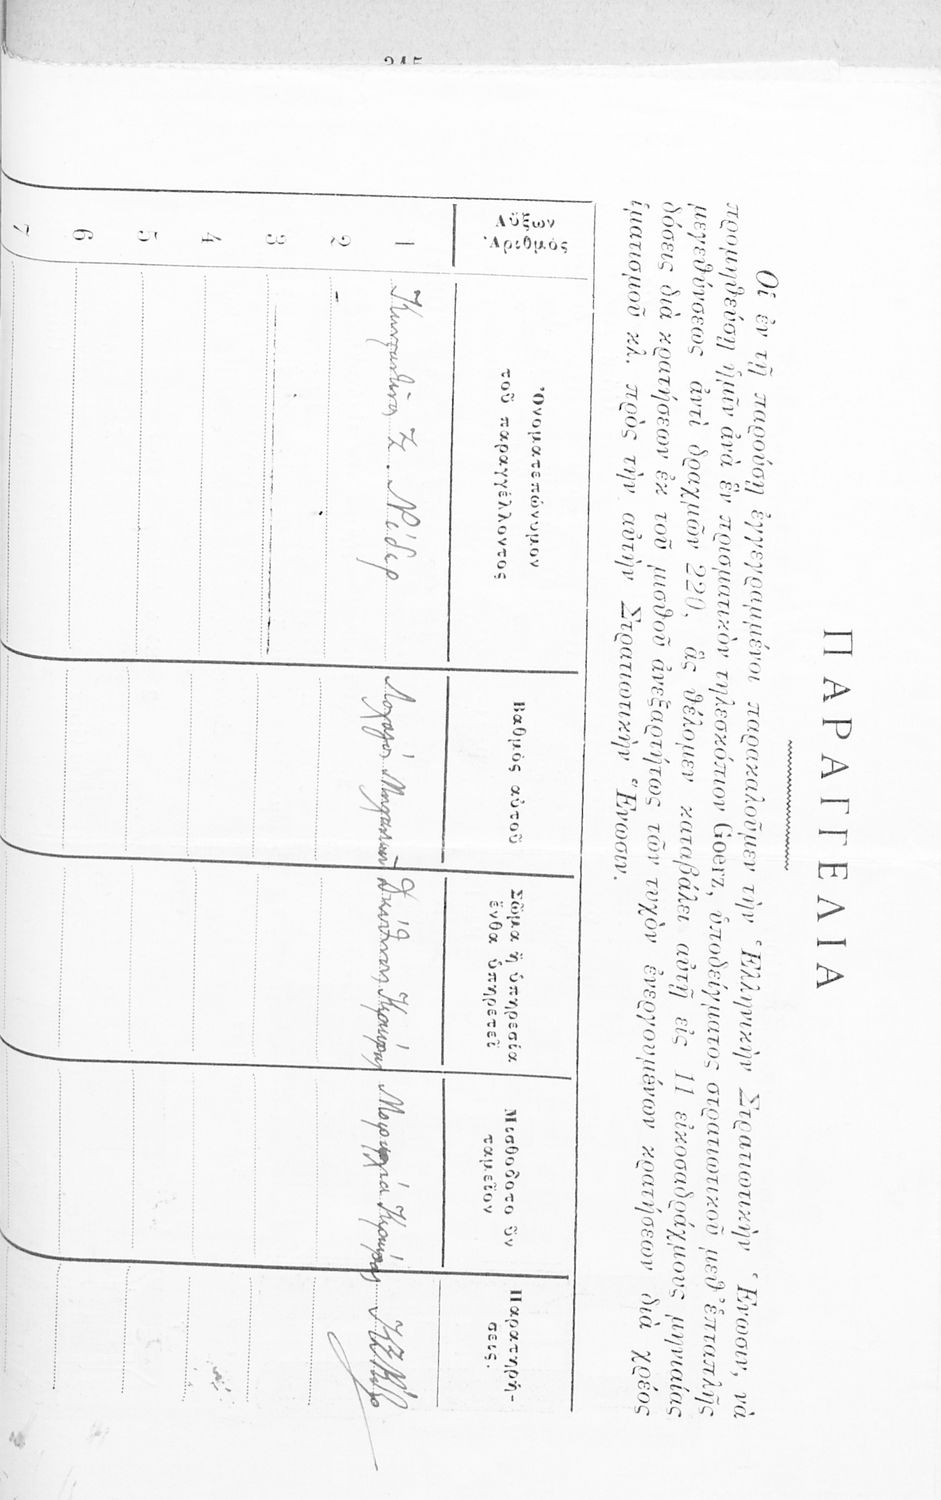 ΠΑΡΑΓΓΕΛΙΑ
Οἱ ἐν τῇ παρούσῃ ἐγγεγραμμένοι παρακαλοῦμεν τὴν Ἑλληνικὴν Στρατιωτικὴν Ἕνωσιν, νὰ
προμηθεύσῃ ἡμῖν ἀνὰ ἓν πρισματικὸν τηλεσκόπιον Goerz, ὑποδείγματος στρατιωτικοῦ μεθ᾽ ἑπταπλῆς
μεγεθύνσεως ἀντὶ δραχμῶν 220, ἃς θέλομεν καταβάλει αὐτῇ εἰς 11 εἰκοσαδράχμους μηνιαίας
δόσεις διὰ κρατήσεων ἐκ τοῦ μισθοῦ ἀνεξαρτήτως τῶν τυχὸν ἐνεργουμένων κρατήσεων διὰ χρέος
ἱματισμοῦ κλ. πρὸς τὴν αὐτὴν Στρατιωτικὴν Ἕνωσιν.
Αὔξων Ἀριθμός
Ὀνοματεπώνυμον τοῦ παραγγέλλοντος
Βαθμὸς αὐτοῦ
Σῶμα ἢ ὑπηρεσία ἔνθα ὑπηρετεῖ
Μισθοδοτοῦν ταμεῖον
Παρατηρήσεις.
1 Κωνσταντῖνος Ζ. Ρίδερ Λοχαγὸς Μηχανικοῦ
2
3
4
5
6
7